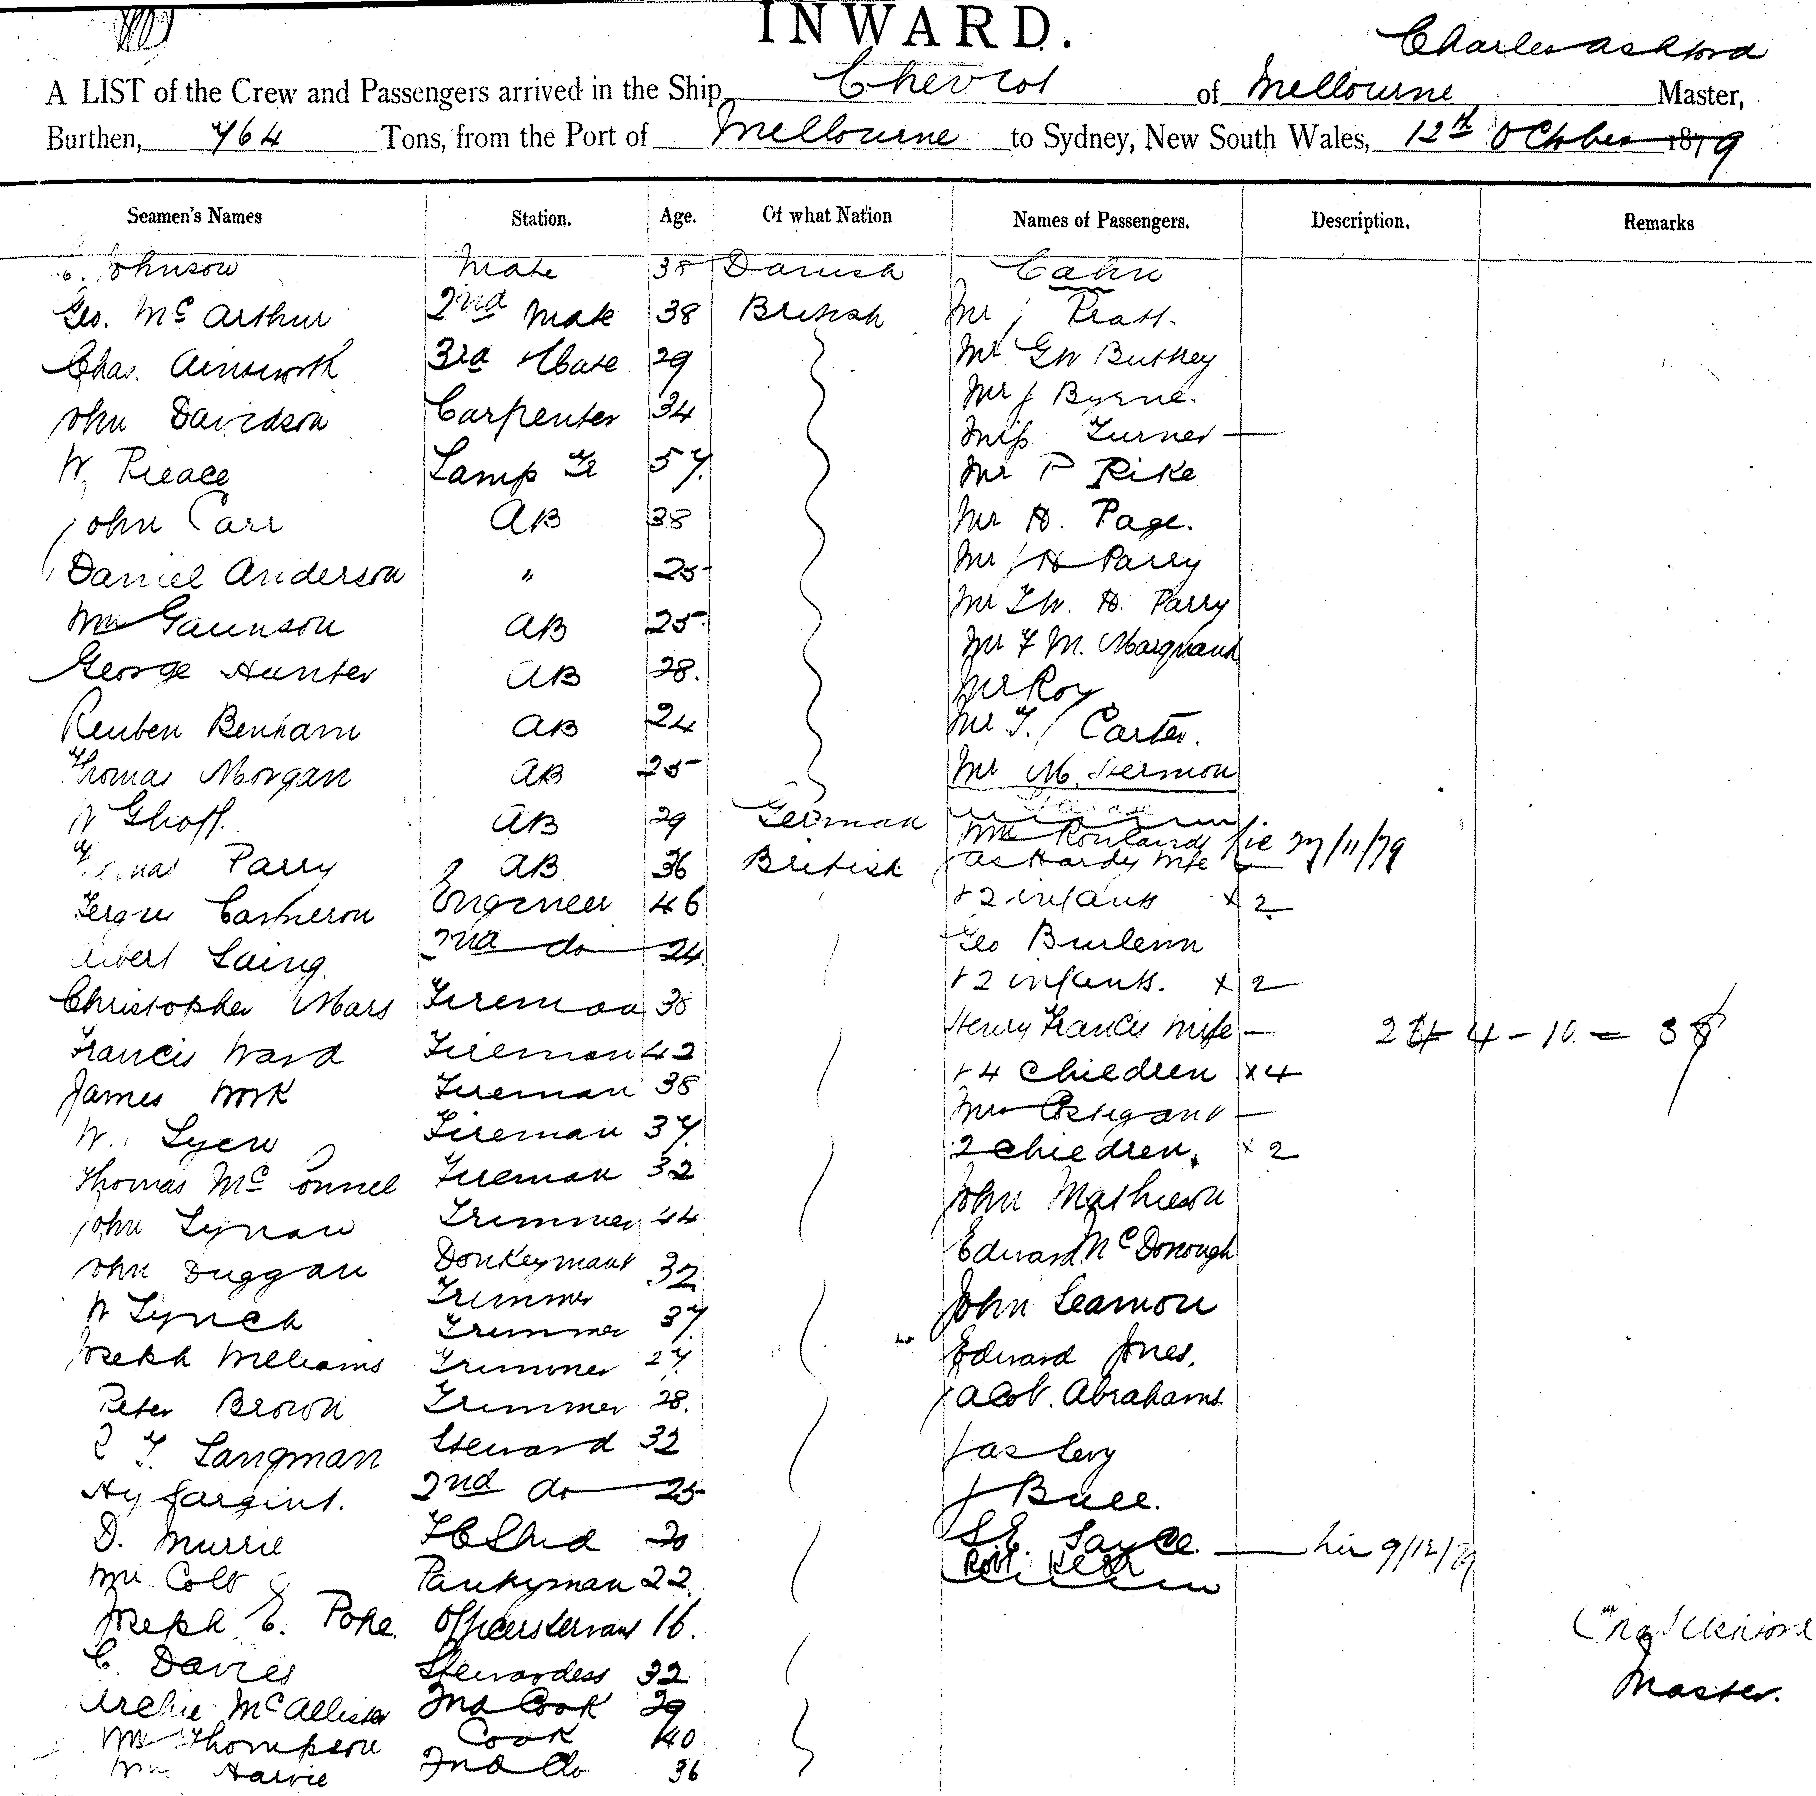 INWARD.
Charles Ashford
A LIST of the Crew and Passengers arrived in the Ship Cheviot of Melbourne Master,
Burthen, 764 Tons, from the Port of Melbourne to Sydney, New South Wales, 12th October 1879
Seamen's Names Station. Age. Of what Nation Names of Passengers. Description. Remarks
Johnson Mate 38 Danish Cabin
Geo. McArthur 2nd Mate 38 British Mr J Pratt.
Chas. Ainsworth 3rd Mate 29 Mr GW Buthey
John Davidson Carpenter 34 Mr J Byrne.
Miss Turner —
W. Peace Lamp Tr 57. Mr P Rike
John Carr AB 38 Mr H. Page.
Daniel Anderson " 25 Mr J H Parry
Mr T W. H. Parry
Wm Gaunson AB 25 Mr F M. Marquand
George Hunter AB 28. Mr Roy
Reuben Benham AB 24 Mr T. J Carter.
Thomas Morgan AB 25 Mr M. Hermon
W Ghoff. AB 29 German
Mrs Rowlands 27/11/79
Thomas Parry AB 36 British Jas Hardy Wife
Fergus Cameron Engineer 46 + 2 infants x 2
Geo Burlenn
Albert Laing. 2nd do 24 + 2 infants. x 2
Christopher Mars Fireman 38 Henry Francis Wife —
Francis Ward Fireman 42 + 4 Children x 4
James Work Fireman 38 Mrs Costigan —
W. Lyen Fireman 37. 2 Children. x 2
Thomas McConnel Fireman 32 John Mathieson
John Lynan Trimmer 44
John Duggan Donkeyman 32 Edward McDonough
Trimmer
W Lynch Trimmer 37. John Seamon
Joseph Williams Trimmer 27. Edward Jones.
Peter Brown Trimmer 28. Jacob. Abrahams
T. Langman Steward 32 Jas Levy
Hy Sargint. 2nd do 25 J Bull.
D. Murrie 20 S.E. Sayce. 9/12/79
Wm Colt Pantryman 22
Joseph E. Pope. Officers Servant 16.
C. Davies Stewardess 32
Master.
Archie McAllister 2nd Cook 29
Wm Thompson Cook 40
Wm Harvie 2nd do 36